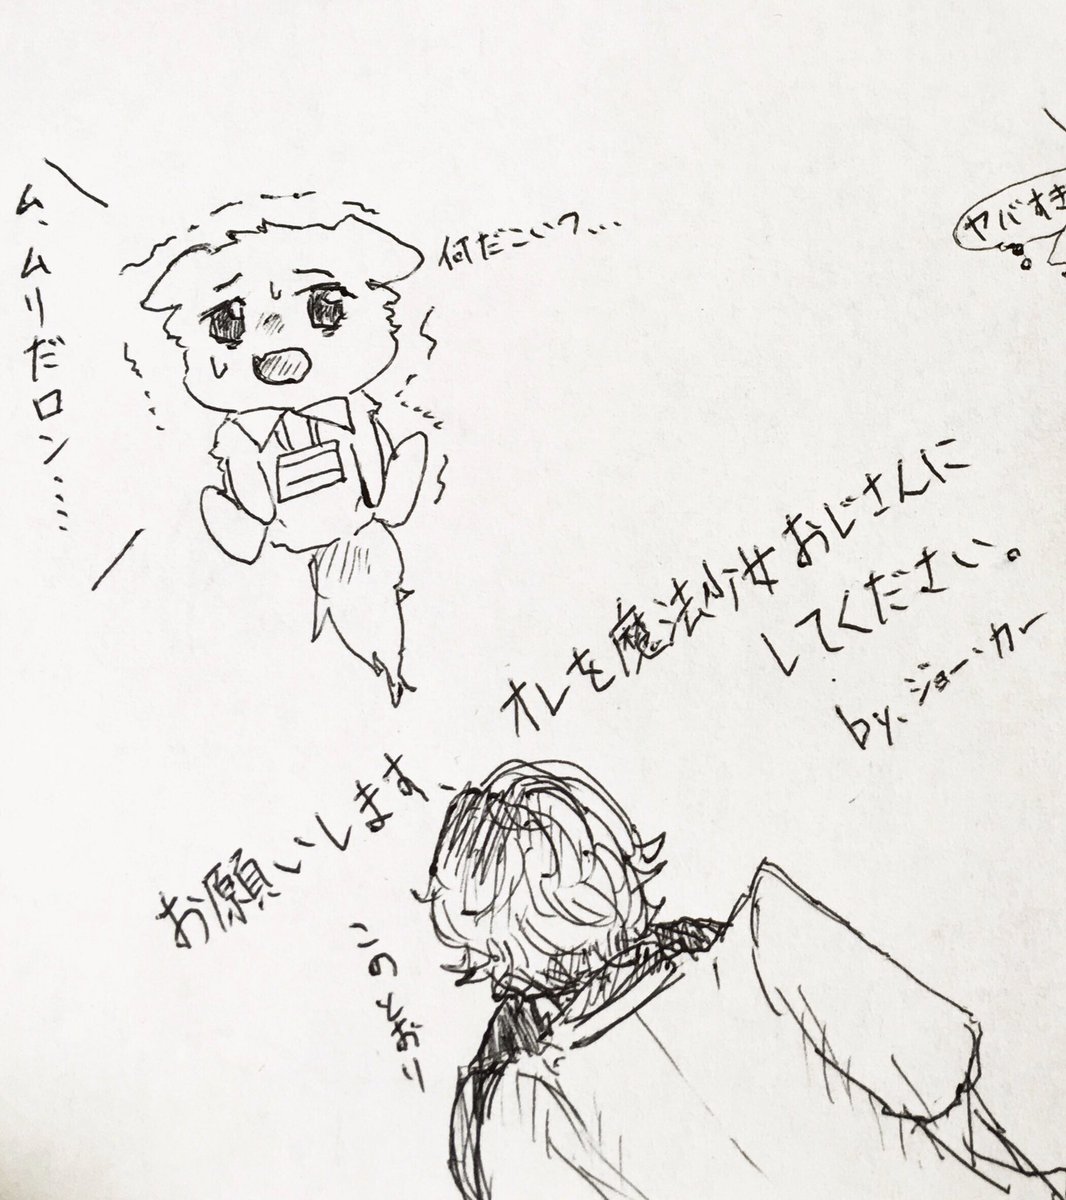 ム、ムリだロン……
何だこいつ…
ヤバすぎ
オレを魔法少女おじさんに
してください。
by、ジョーカー
お願いします
このとおり